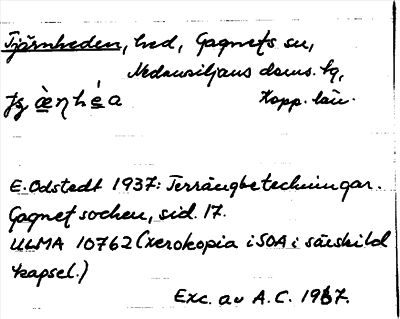 Tjärnheden, hed, Gagnefs sn,
Nedansiljans doms. tg,
Kopp. län.
E. Odstedt 1937: Terrängbeteckningar.
Gagnef socken, sid. 17.
ULMA 10762 (xerokopia i SOA i särskild
kapsel.)
Exc. av A.C. 1967.